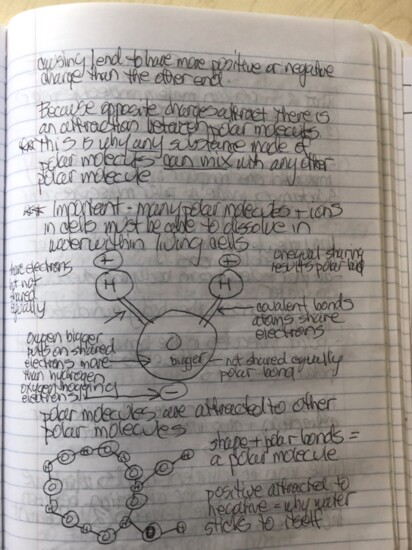 causing 1 end to have more positive or negative
charge than the other end.
Because opposite charges attract there is
an attraction between polar molecules
this is why any substance made of
polar molecules can mix with any other
polar molecule
Important - many polar molecules + ions
in cells must be able to dissolve in
water within living cells.
+
+
electrons
but not
shared
equally
unequal sharing
results polar bond
H
H
covalent bonds
atoms share
electrons
oxygen bigger
pulls on shared
electrons more
than hydrogen
oxygen hogging
electrons!
O
bigger
not shared equally
polar bond
-
polar molecules are attracted to other
polar molecules
shape + polar bonds =
a polar molecule
positive attracted to
negative = why water
sticks to itself